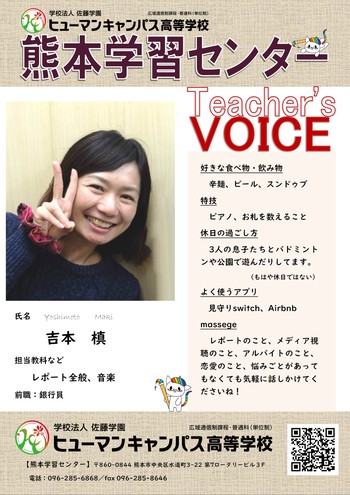 学校法人 佐藤学園
広域通信制課程・普通科(単位制)
ヒューマンキャンパス高等学校
熊本学習センター
Teacher's
VOICE
好きな食べ物・飲み物
辛麺、ビール、スンドゥブ
特技
ピアノ、お札を数えること
休日の過ごし方
3人の息子たちとバドミント
ンや公園で遊んだりしてます。
(もはや休日ではない)
よく使うアプリ
見守りswitch、Airbnb
massege
レポートのこと、メディア視
聴のこと、アルバイトのこと、
恋愛のこと、悩みごとがあって
もなくても気軽に話しかけてく
ださいね!
氏名 Yoshimoto Maki
吉本 槙
担当教科など
レポート全般、音楽
前職:銀行員
学校法人 佐藤学園
広域通信制課程・普通科(単位制)
ヒューマンキャンパス高等学校
【熊本学習センター】〒860-0844 熊本市中央区水道町3-22 第7ロータリービル3F
電話:096-285-6868/fax 096-285-8646